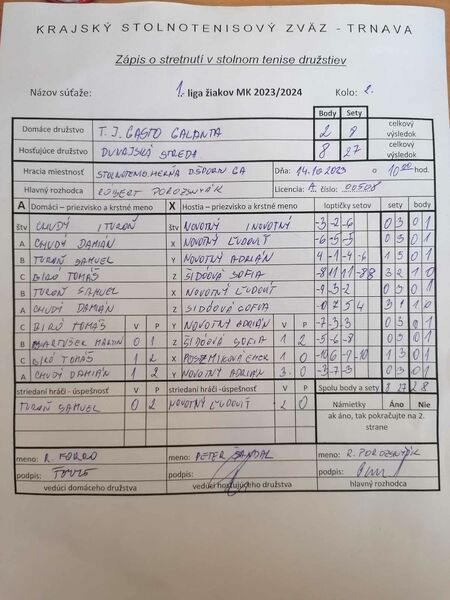 KRAJSKÝ STOLNOTENISOVÝ ZVÄZ - TRNAVA
Zápis o stretnutí v stolnom tenise družstiev
Názov súťaže: 1. liga žiakov MK 2023/2024 Kolo: 2.
Body Sety
Domáce družstvo T. J. GASTO GALANTA 2 8 celkový výsledok
Hosťujúce družstvo DUNAJSKÁ STREDA 8 27 celkový výsledok
Hracia miestnosť STOLNOTENIS. HERŇA Dňa: 14.10.2023 o 10:00 hod.
Hlavný rozhodca ROBERT POROZSNYÁK Licencia A. číslo:
A Domáci – priezvisko a krstné meno X Hostia – priezvisko a krstné meno loptičky setov sety body
štv CHUDÝ / TUROŇ štv NOVOTNÝ / NOVOTNÝ -3 -2 -6 0 3 0 1
A CHUDÝ DAMIÁN X NOVOTNÝ ĽUDOVÍT -6 -5 -5 0 3 0 1
B TUROŇ SAMUEL Y NOVOTNÝ ADRIÁN 4 -1 -4 -6 1 3 0 1
C BÍRÓ TOMÁŠ Z ŠIDÓOVÁ SOFIA -8 11 11 -8 8 3 2 1 0
B TUROŇ SAMUEL X NOVOTNÝ ĽUDOVÍT -9 -3 -2 0 3 0 1
A CHUDÝ DAMIÁN Z ŠIDÓOVÁ SOFIA 3 1 1 0
C BÍRÓ TOMÁŠ V P Y NOVOTNÝ ADRIÁN V P -7 -3 -3 0 3 0 1
B MARTUŠEK MARTIN 0 1 Z ŠIDÓOVÁ SOFIA 1 2 -5 -6 -8 0 3 0 1
C BÍRÓ TOMÁŠ 1 2 X 1 0 -10 6 -9 -10 1 3 0 1
A CHUDÝ DAMIÁN 1 2 Y NOVOTNÝ ADRIÁN 3 0 -3 -7 -3 0 3 0 1
striedaní hráči - úspešnosť striedaní hráči - úspešnosť Spolu body a sety 8 27 2 8
TUROŇ SAMUEL 0 2 NOVOTNÝ ĽUDOVÍT 2 0 Námietky Áno Nie
ak áno, tak pokračujte na 2. strane
meno: R. FORRO meno: PETER ŠANDAL meno: R. POROZSNYÁK
podpis: podpis: podpis:
vedúci domáceho družstva vedúci hosťujúceho družstva hlavný rozhodca